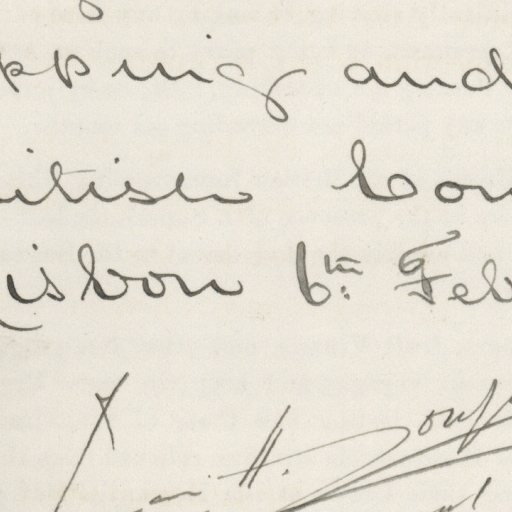 pping and
itish Con
Lisbon 6th. Feb
H.